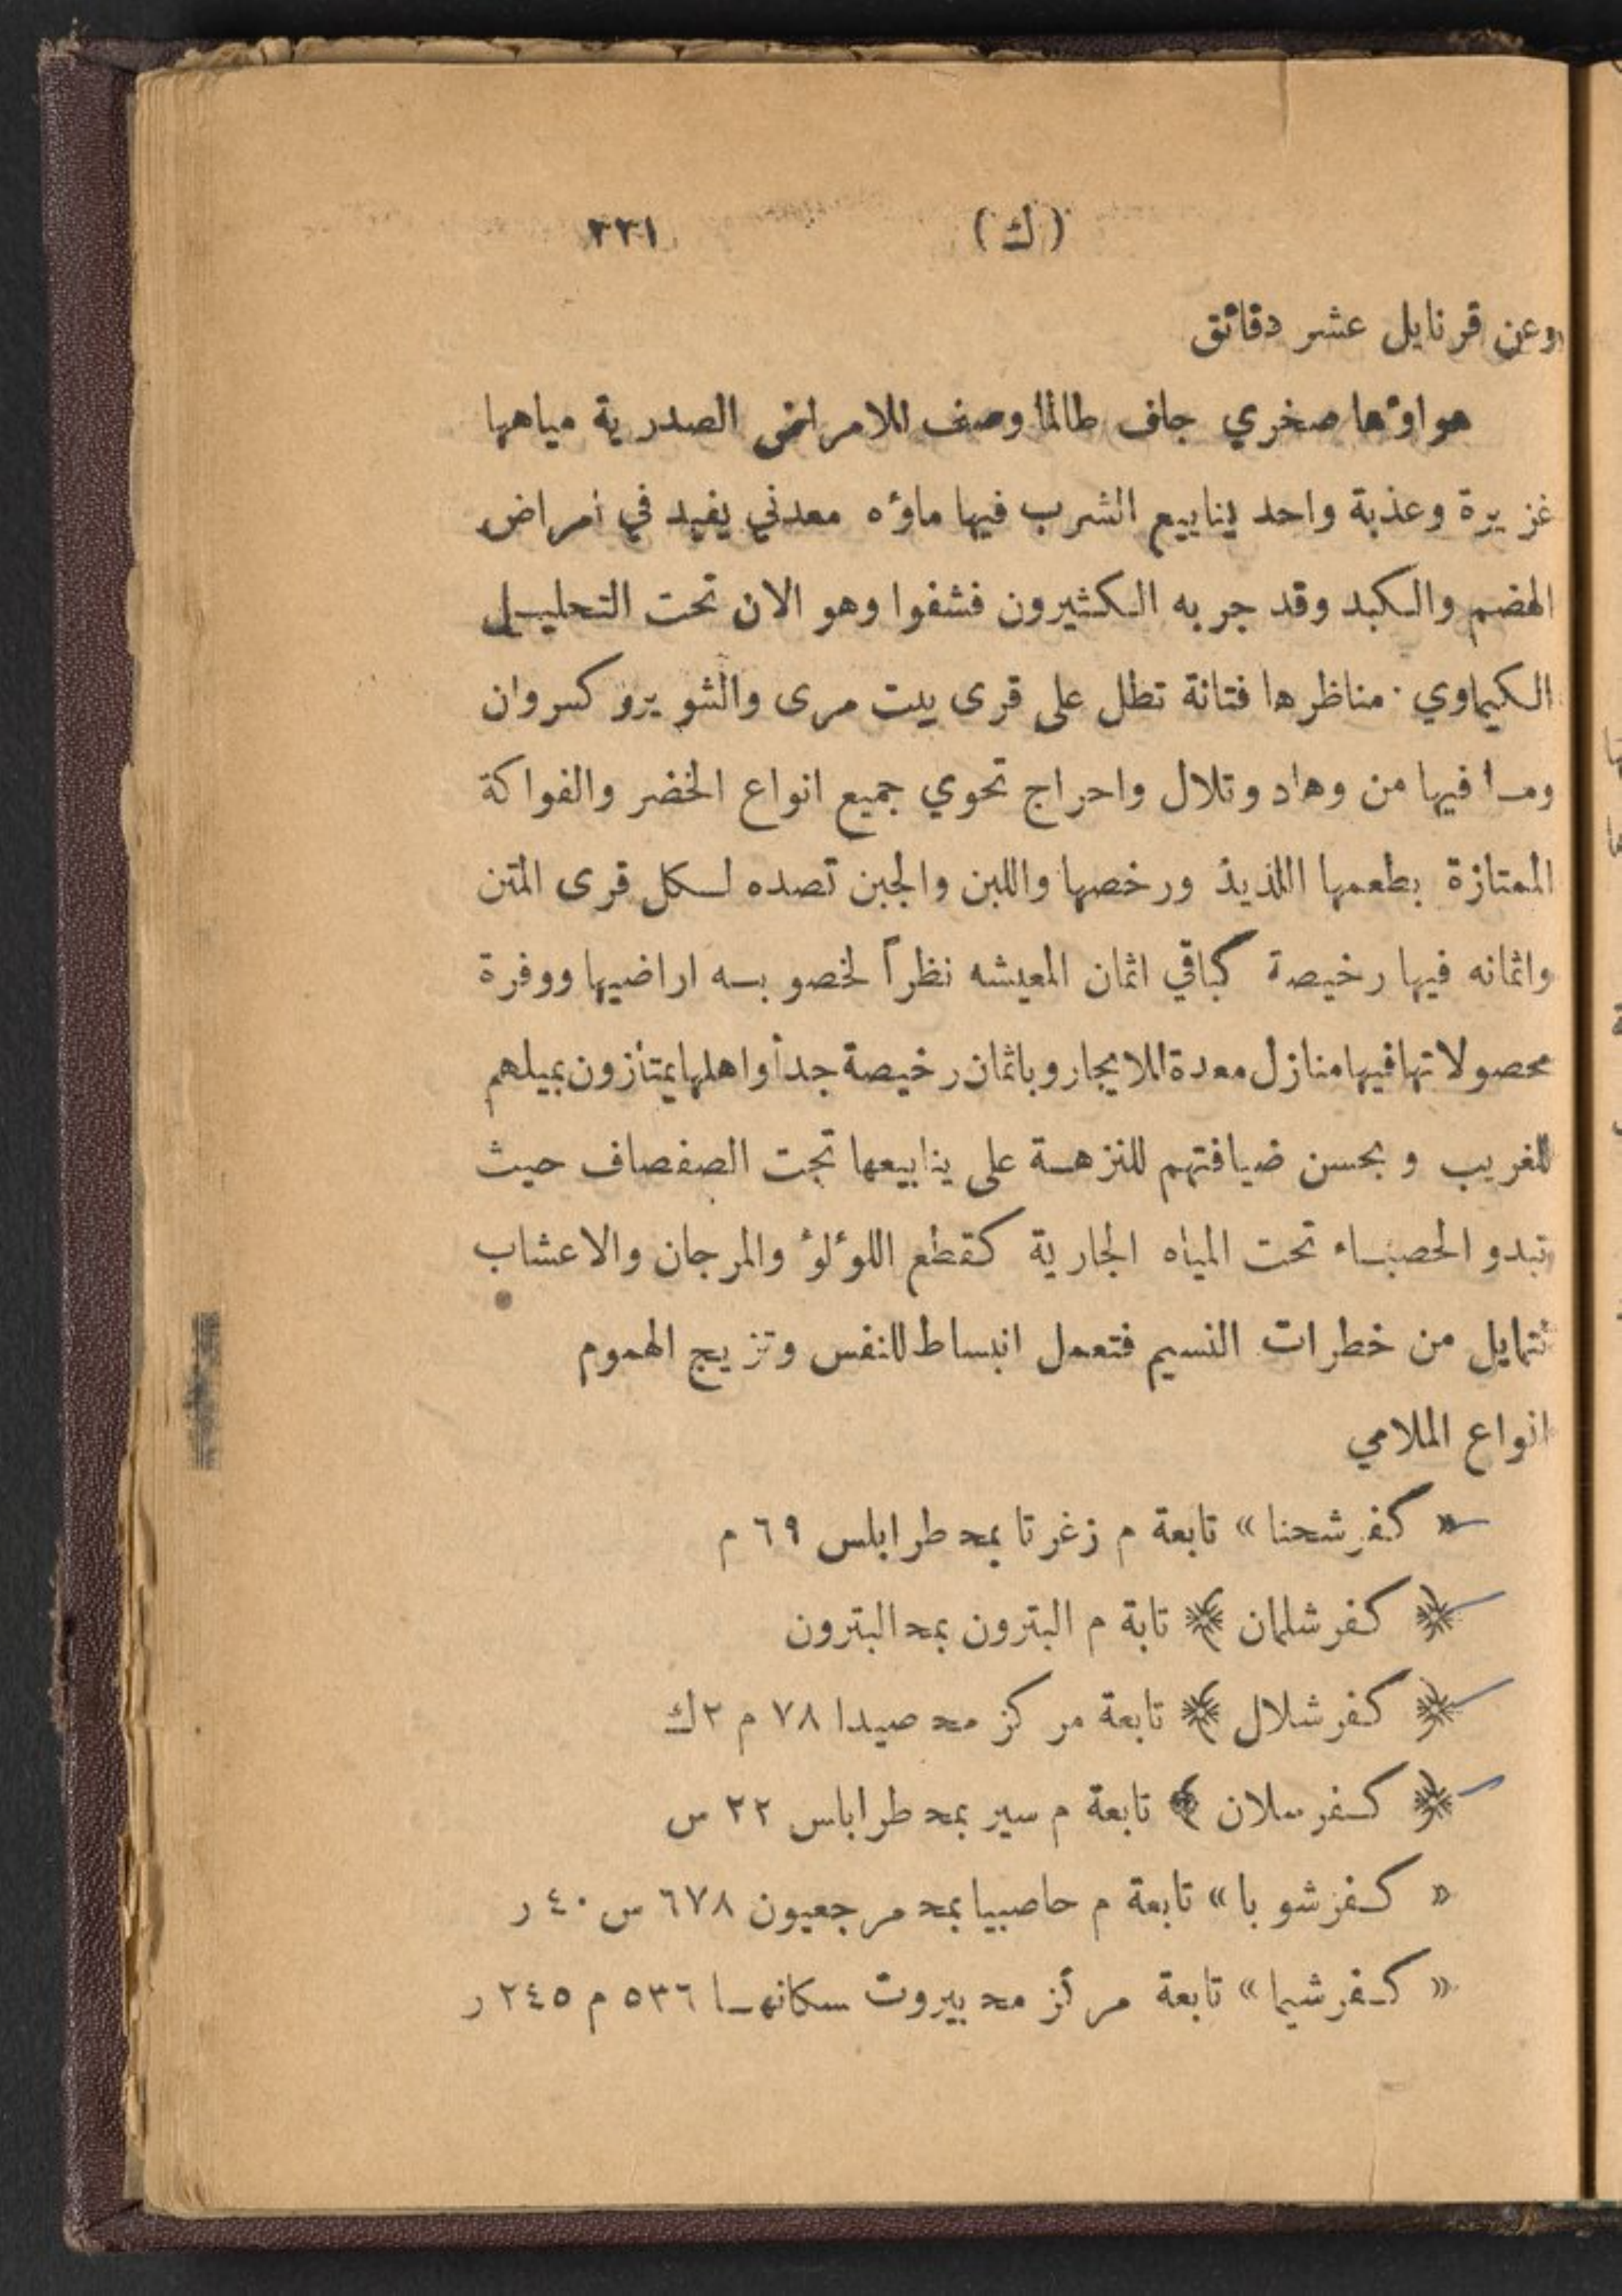 (ك) ٢٣١
وعن قرنايل عشر دقائق
هواؤها صخري جاف طالما وصف للامراض الصدرية مياهها
غزيرة وعذبة واحد ينابيع الشرب فيها ماؤه معدني يفيد في امراض
الهضم والكبد وقد جربه الكثيرون فشفوا وهو الان تحت التحليل
الكيماوي · مناظرها فتانة تطل على قرى بيت مرى والشوير وكسروان
وما فيها من وهاد وتلال واحراج تحوي جميع انواع الخضر والفواكة
الممتازة بطعمها اللذيذ ورخصها واللبن والجبن تصده لكل قرى المتن
واثمانه فيها رخيصة كباقي اثمان المعيشه نظراً لخصوبه اراضيها ووفرة
محصولاتها فيها منازل معدة للايجار وباثمان رخيصة جداً واهلها يمتازون بميلهم
للغريب وبحسن ضيافتهم للنزهة على ينابيعها تحت الصفصاف حيث
تبدو الحصباء تحت المياه الجارية كقطع اللؤلؤ والمرجان والاعشاب
تتمايل من خطرات النسيم فتعمل انبساط للنفس وتزيج الهموم
انواع الملامي
« كفرشحنا » تابعة م زغرتا بمحـ طرابلس ٦٩ م
﴿ كفرشلمان ﴾ تابة م البترون بمحـ البترون
﴿ كفرشلال ﴾ تابعة مركز محـ صيدا ٧٨ م ٢ ك
﴿ كفرسلان ﴾ تابعة م سير بمحـ طراباس ٢٢ س
« كفرشوبا » تابعة م حاصبيا بمحـ مرجعيون ٦٧٨ س ٤٠ ر
« كفرشيما » تابعة مركز محـ بيروت سكانها ٥٣٦ م ٢٤٥ ر